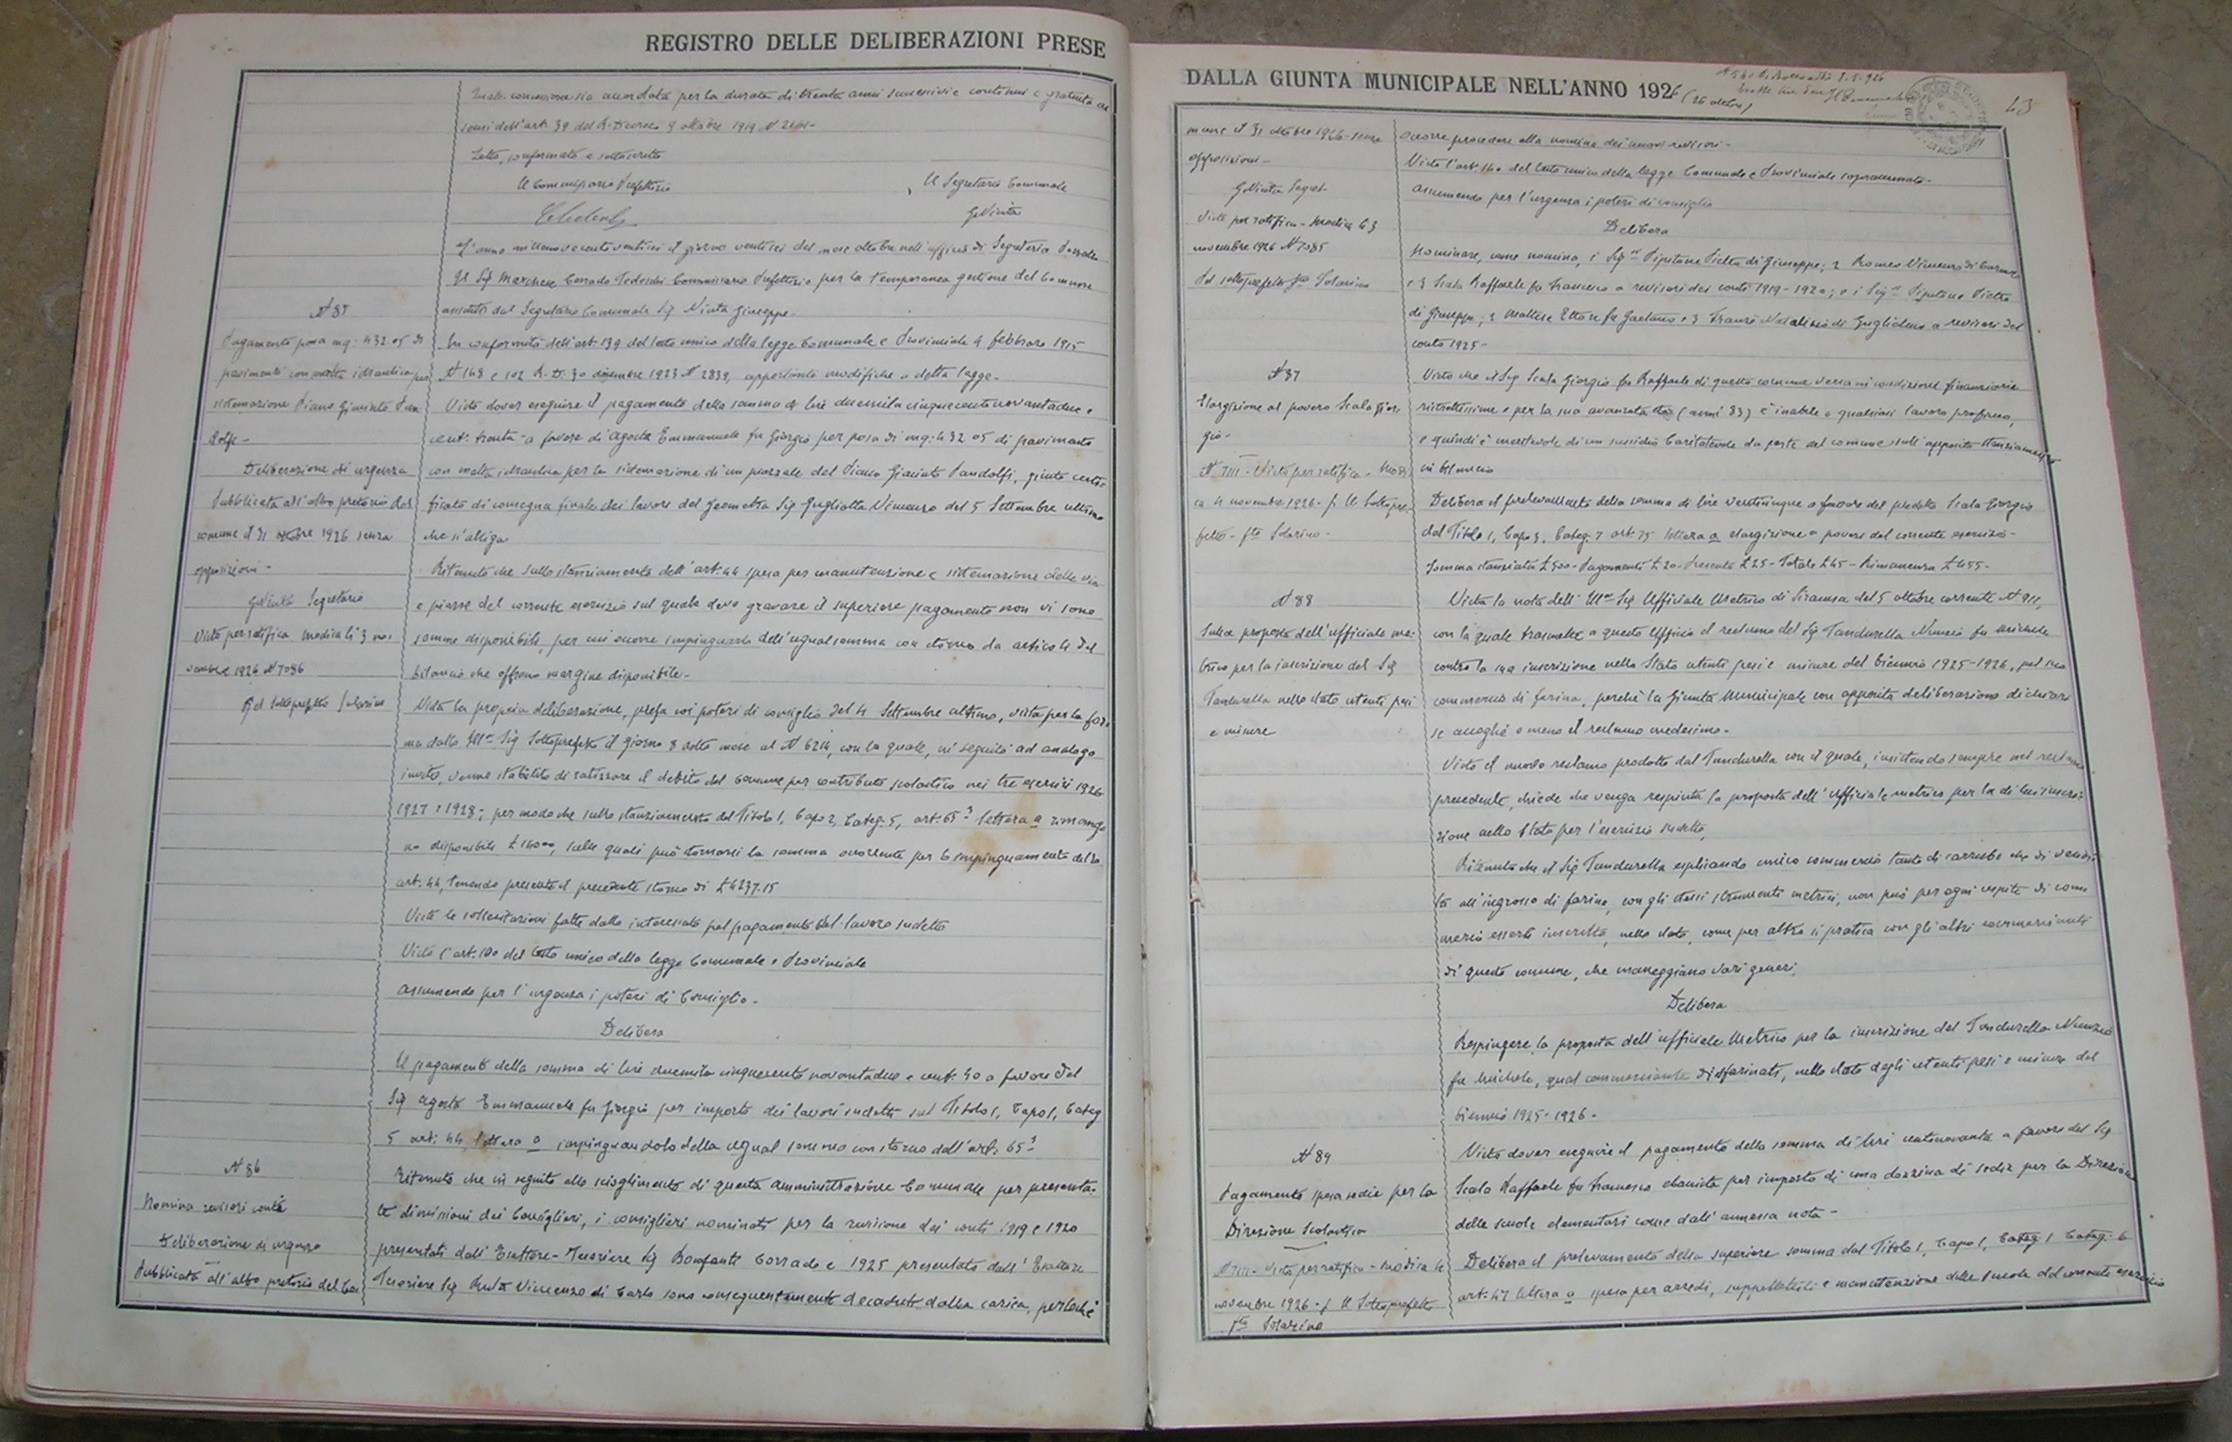 REGISTRO DELLE DELIBERAZIONI PRESE
concessione sia accordata per la durata di trenta anni successivi e continui e gratuita ai
sensi dell'art. 39 del R. Decreto 9 ottobre 1919 N
Letto, confermato e sottoscritto
Il Commissario Prefettizio
Il Segretario Comunale
G Niuta
L'anno millenovecentoventisei il giorno ventisei del mese ottobre nell'ufficio di Segreteria
Il Sig Marchese Corrado Tedeschi Commissario Prefettizio per la temporanea gestione del Comune
assistito dal Segretario Comunale Sig Niuta Giuseppe.
N 85
Pagamento posa mq: 432.05 di
pavimento con malta idraulica per
sistemazione Piano Giacinto Pan
dolfi -
Deliberazione di urgenza
Pubblicata all'albo pretorio del
comune il 31 ottobre 1926 senza
opposizioni -
G Niuta Segretario
Visto per ratifica Modica li 3 no-
vembre 1926 N 7086
Pel sottoprefetto Solarino
In conformità dell'art 139 del testo unico della legge Comunale e Provinciale 4 febbraio 1915
N 148 e 102 R. D. 30 dicembre 1923 N 2839, apportante modifiche a detta legge.
Visto dover eseguire il pagamento della somma di lire duemilacinquecentonovantadue e
cent. trenta a favore di Agosta Emmanuele fu Giorgio per posa di mq: 432.05 di pavimento
con malta idraulica per la sistemazione di un piazzale del Piano Giacinto Pandolfi, giusta certi-
ficato di consegna finale dei lavori del geometra Sig Gugliotta Vincenzo del 5 Settembre ultimo
che si alliga
Ritenuto che sullo stanziamento dell'art. 44 spesa per manutenzione e sistemazione delle vie
e piazze del corrente esercizio sul quale deve gravare il superiore pagamento non vi sono
somme disponibili, per cui occorre impinguarlo dell'egual somma con storno da articoli del
bilancio che offrono margine disponibile.
Vista la propria deliberazione, presa coi poteri di consiglio del 4 Settembre ultimo, vista per la for-
ma dallo Ill.mo Sig Sottoprefetto il giorno 8 detto mese al N 6214, con la quale, in seguito ad analogo
invito, venne stabilito di ratizzare il debito del Comune per contributi scolastico nei tre esercizi 1926
1927 e 1928; per modo che sullo stanziamento del Titolo I, Capo 2, Categ. 5, art. 65 3 lettera a rimango-
no disponibili £ 16000, sulle quali può stornarsi la somma occorrente per lo impinguamento dello
art. 44, tenendo presente il precedente storno di £ 4237.15
Viste le sollecitazioni fatte dallo interessato pel pagamento del lavoro sudetto
Visto l'art. 140 del testo unico della legge Comunale e Provinciale
Assumendo per l'urgenza i poteri di Consiglio.
Delibera
Il pagamento della somma di lire duemila cinquecento novantadue e cent. 30 a favore del
Sig Agosta Emmanuele fu Giorgio per importo dei lavori sudetti sul Titolo I, Capo I, Categ
5 art. 44, lettera a impinguandolo della egual somma con storno dall'art. 65 3
N 86
Nomina revisori conti
Deliberazione di urgenza
Pubblicata all'albo pretorio del Co
Ritenuto che in seguito allo scioglimento di questa amministrazione Comunale per presenta-
te dimissioni dei Consiglieri, i consiglieri nominati per la revisione dei conti 1919 e 1920
presentati dall'Esattore-Tesoriere Sig Bonfanti Corrado e 1925 presentato dall'Esattore
Tesoriere Sig Ruta Vincenzo di Carlo sono conseguentemente decaduti dalla carica, perlochè
DALLA GIUNTA MUNICIPALE NELL'ANNO 1926 (26 ottobre)
43
mune il 31 ottobre 1926 senza
opposizioni -
G Niuta Segret.
Visto per ratifica - Modica li 3
novembre 1926 N 7085
Pel sottoprefetto fto Solarino
occorre procedere alla nomina dei nuovi revisori -
Visto l'art. 140 del testo unico della legge Comunale e Provinciale sopracennato -
Assumendo per l'urgenza i poteri di consiglio
Delibera
Nominare, come nomina, i Sig.ri Pipitone Pietro di Giuseppe, 2 Romeo Vincenzo di Carmelo
e 3 Scala Raffaele fu Francesco a revisori dei conti 1919-1920; e i Sig.ri Pipitone Pietro
di Giuseppe, 2 Maltese Ettore fu Gaetano e 3 Natalizio di Guglielmo a revisori del
conto 1925 -
N 87
Elargizione al povero Scala Gior
gio -
N 7111 - Visto per ratifica - Modi
ca 4 novembre 1926 - p. Il Sottopre-
fetto - fto Solarino -
Visto che il Sig Scala Giorgio fu Raffaele di questo comune versa in condizioni finanziarie
ristrettissime e per la sua avanzata età (anni 83) è inabile a qualsiasi lavoro proficuo,
e quindi è meritevole di un sussidio caritatevole da parte del comune sull'apposito stanziamento
in bilancio
Delibera il prelevamento della somma di lire venticinque a favore del predetto Scala Giorgio
dal Titolo I, Capo 3, Categ. 7 art. 75 lettera a elargizione a poveri del corrente esercizio -
Somma stanziata £ 500 - Pagamenti £ 20 - Presente £ 25 - Totale £ 45 - Rimanenza £ 455 -
N 88
Sulla proposta dell'ufficiale me-
trico per la iscrizione del Sig
Tandurella nello stato utenti pesi
e misure
Vista la nota dell'Ill.mo Sig Ufficiale Metrico di Siracusa del 5 ottobre corrente N 911,
con la quale trasmette a questo Ufficio il reclamo del Sig Tandurella Nunzio fu Michele
contro la sua iscrizione nello Stato utenti pesi e misure del biennio 1925-1926, pel suo
commercio di farina, perchè la Giunta Municipale con apposita deliberazione dichiari
se accoglie o meno il reclamo medesimo -
Visto il nuovo reclamo prodotto dal Tandurella con il quale, insistendo sempre nel reclamo
precedente, chiede che venga respinta la proposta dell'Ufficiale metrico per la di lui inscri-
zione nello Stato per l'esercizio sudetto,
Ritenuto che il Sig Tandurella esplicando unico commercio tanto di carrubo che di vendi-
ta all'ingrosso di farine, con gli stessi strumenti metrici, non può per ogni cespite di com-
mercio essere inscritto, nello stato, come per altro si pratica con gli altri commercianti
di questo comune, che maneggiano vari generi,
Delibera
Respingere la proposta dell'ufficiale Metrico per la inscrizione del Tandurella Nunzio
fu Michele, qual commerciante di sfarinati, nello stato degli utenti pesi e misure del
biennio 1925-1926 -
N 89
Pagamento spesa sedie per la
Direzione Scolastica
N 7111 - Visto per ratifica - Modica 4
novembre 1926 - p Il Sottoprefetto
fto Solarino
Visto dover eseguire il pagamento della somma di lire centonovanta a favore del Sig
Scala Raffaele fu Francesco ebanista per importo di una dozzina di sedie per la Direzione
delle scuole elementari come dall'annessa nota -
Delibera il prelevamento della superiore somma dal Titolo I, Capo I, Categ I Categ. 6
art. 47 lettera a spesa per arredi, suppellettili e manutenzione delle scuole del corrente esercizio